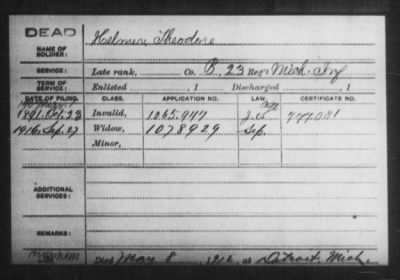 DEAD
NAME OF SOLDIER:
Helmer, Theodore
SERVICE:
Late rank, Co. B, 23 Reg't Mich. Inf
TERM OF SERVICE:
Enlisted , 1 Discharged , 1
DATE OF FILING. CLASS. APPLICATION NO. LAW. CERTIFICATE NO.
1891. Oct. 23 Invalid, 1065.947 777081
1916. Sep. 27 Widow, 1078929 Sep.
Minor,
ADDITIONAL SERVICES:
REMARKS:
Died May 8 , 1916 at Detroit, Mich.